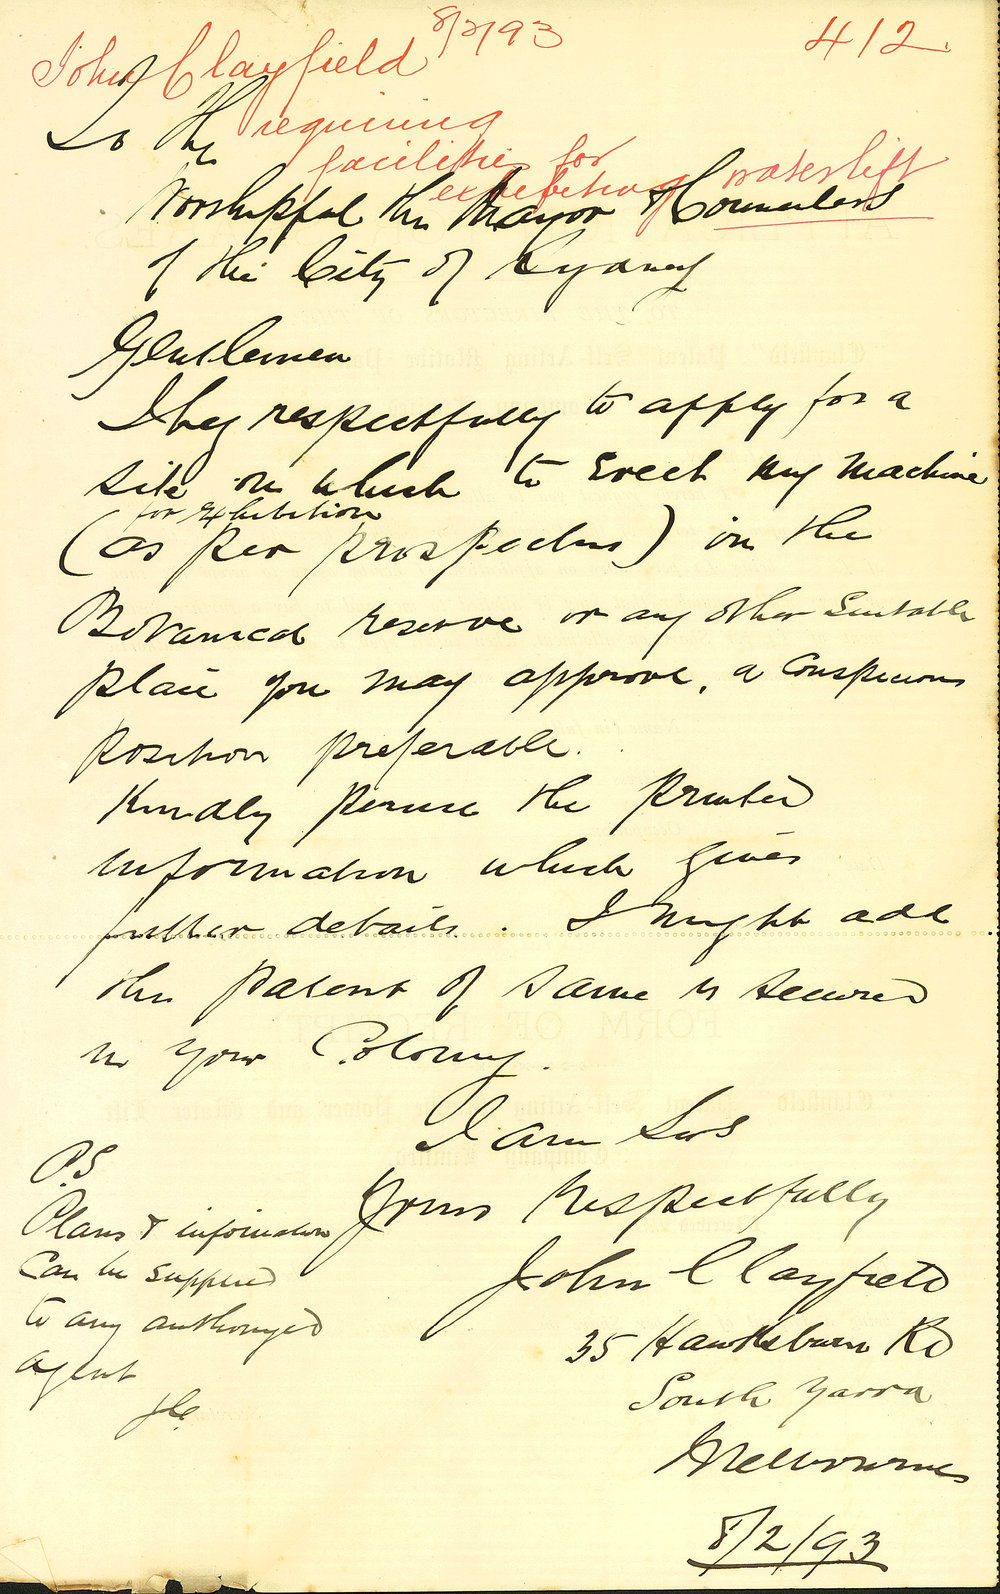 John Clayfield 8/2/93 412.
requiring
facilities for
exhibiting waterlift
To the
Worshipful the Mayor & Councilors
of the City of Sydney
Gentlemen
I beg respectfully to apply for a
site on which to Erect my Machine
for exhibition
(as per prospectus) in the
Botanical reserve or any other Suitable
place you may approve, a Conspicuous
position preferable.
Kindly peruse the printed
information which gives
further details. I might add
the patent of same is secured
in your Colony.
I am Sirs
Yours respectfully
John Clayfield
35 Hawksburn Rd
South Yarra
Melbourne
8/2/93
P.S
Plans & information
Can be supplied
to any authorized
agent
JC.